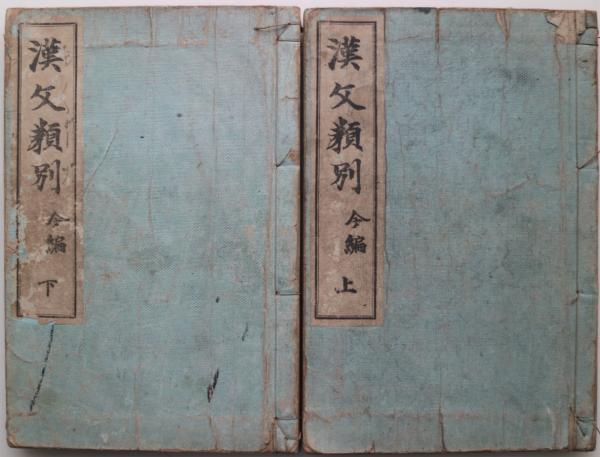 漢文類別
今編
上
漢文類別
今編
下